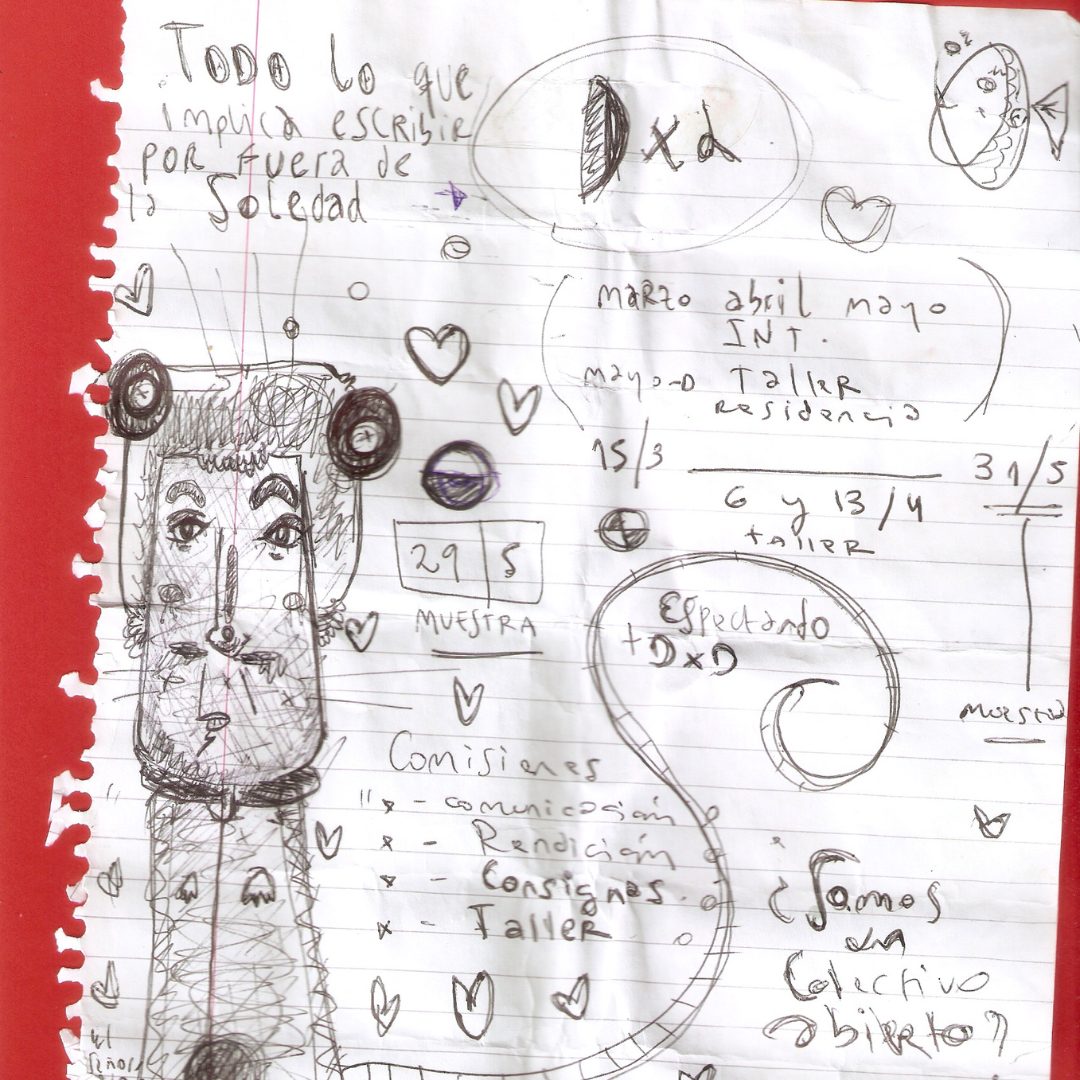 TODO lo que
implica escribir
por fuera de
la Soledad
Dxd
marzo abril mayo
INT.
mayo-D Taller
residencia
15/3 31/5
6 y 13/4
taller
29 5
MUESTRA
Espectando
+DxD
muestra
Comisiones
- comunicación
x - Rendición
x - Consignas
x - Taller
¿Somos
un
Colectivo
abierto?
el
señor